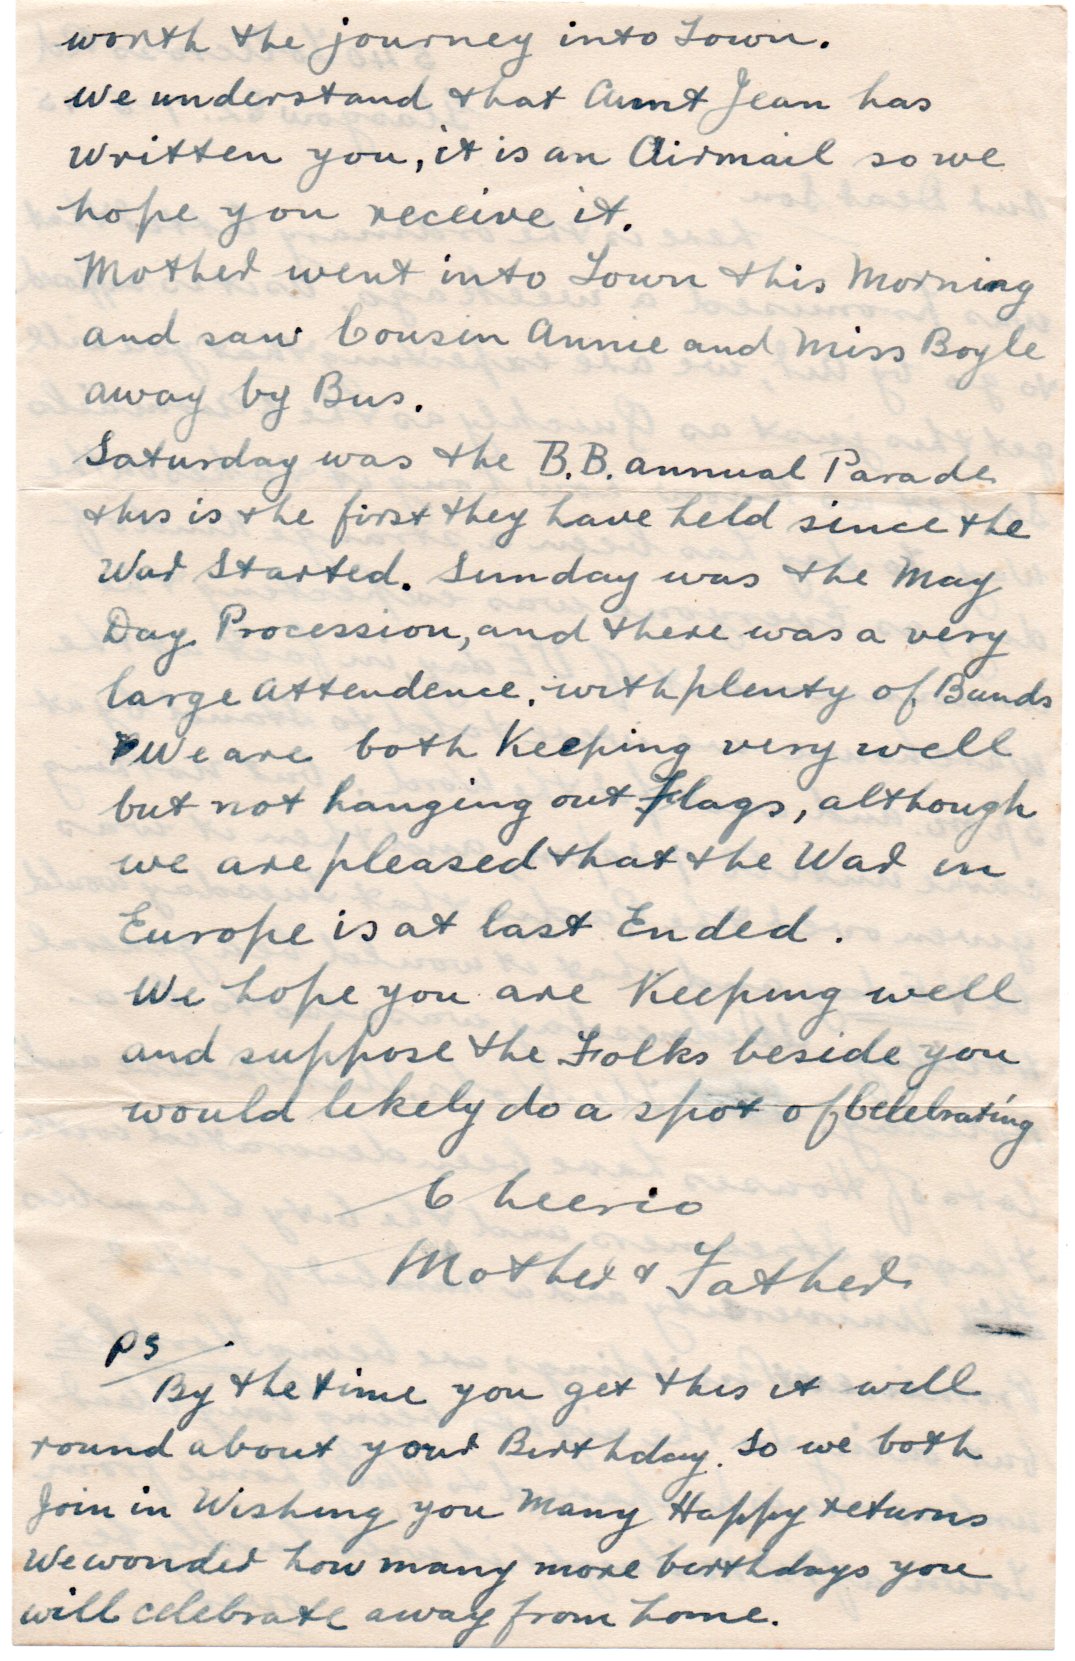 worth the journey into Town.
We understand that Aunt Jean has
written you, it is an Airmail so we
hope you receive it.
Mother went into Town this Morning
and saw Cousin Annie and Miss Boyle
away by Bus.
Saturday was the B.B. annual Parade
this is the first they have held since the
War Started. Sunday was the May
Day Procession, and there was a very
large Attendence. with plenty of Bands
We are both Keeping very well
but not hanging out Flags, although
we are pleased that the War in
Europe is at last Ended.
We hope you are Keeping well
and suppose the Folks beside you
would likely do a spot of Celebrating
Cheerio
Mother & Father
PS
By the time you get this it will
round about your Birthday. So we both
Join in Wishing you Many Happy returns
We wonder how many more birthdays you
will celebrate away from home.